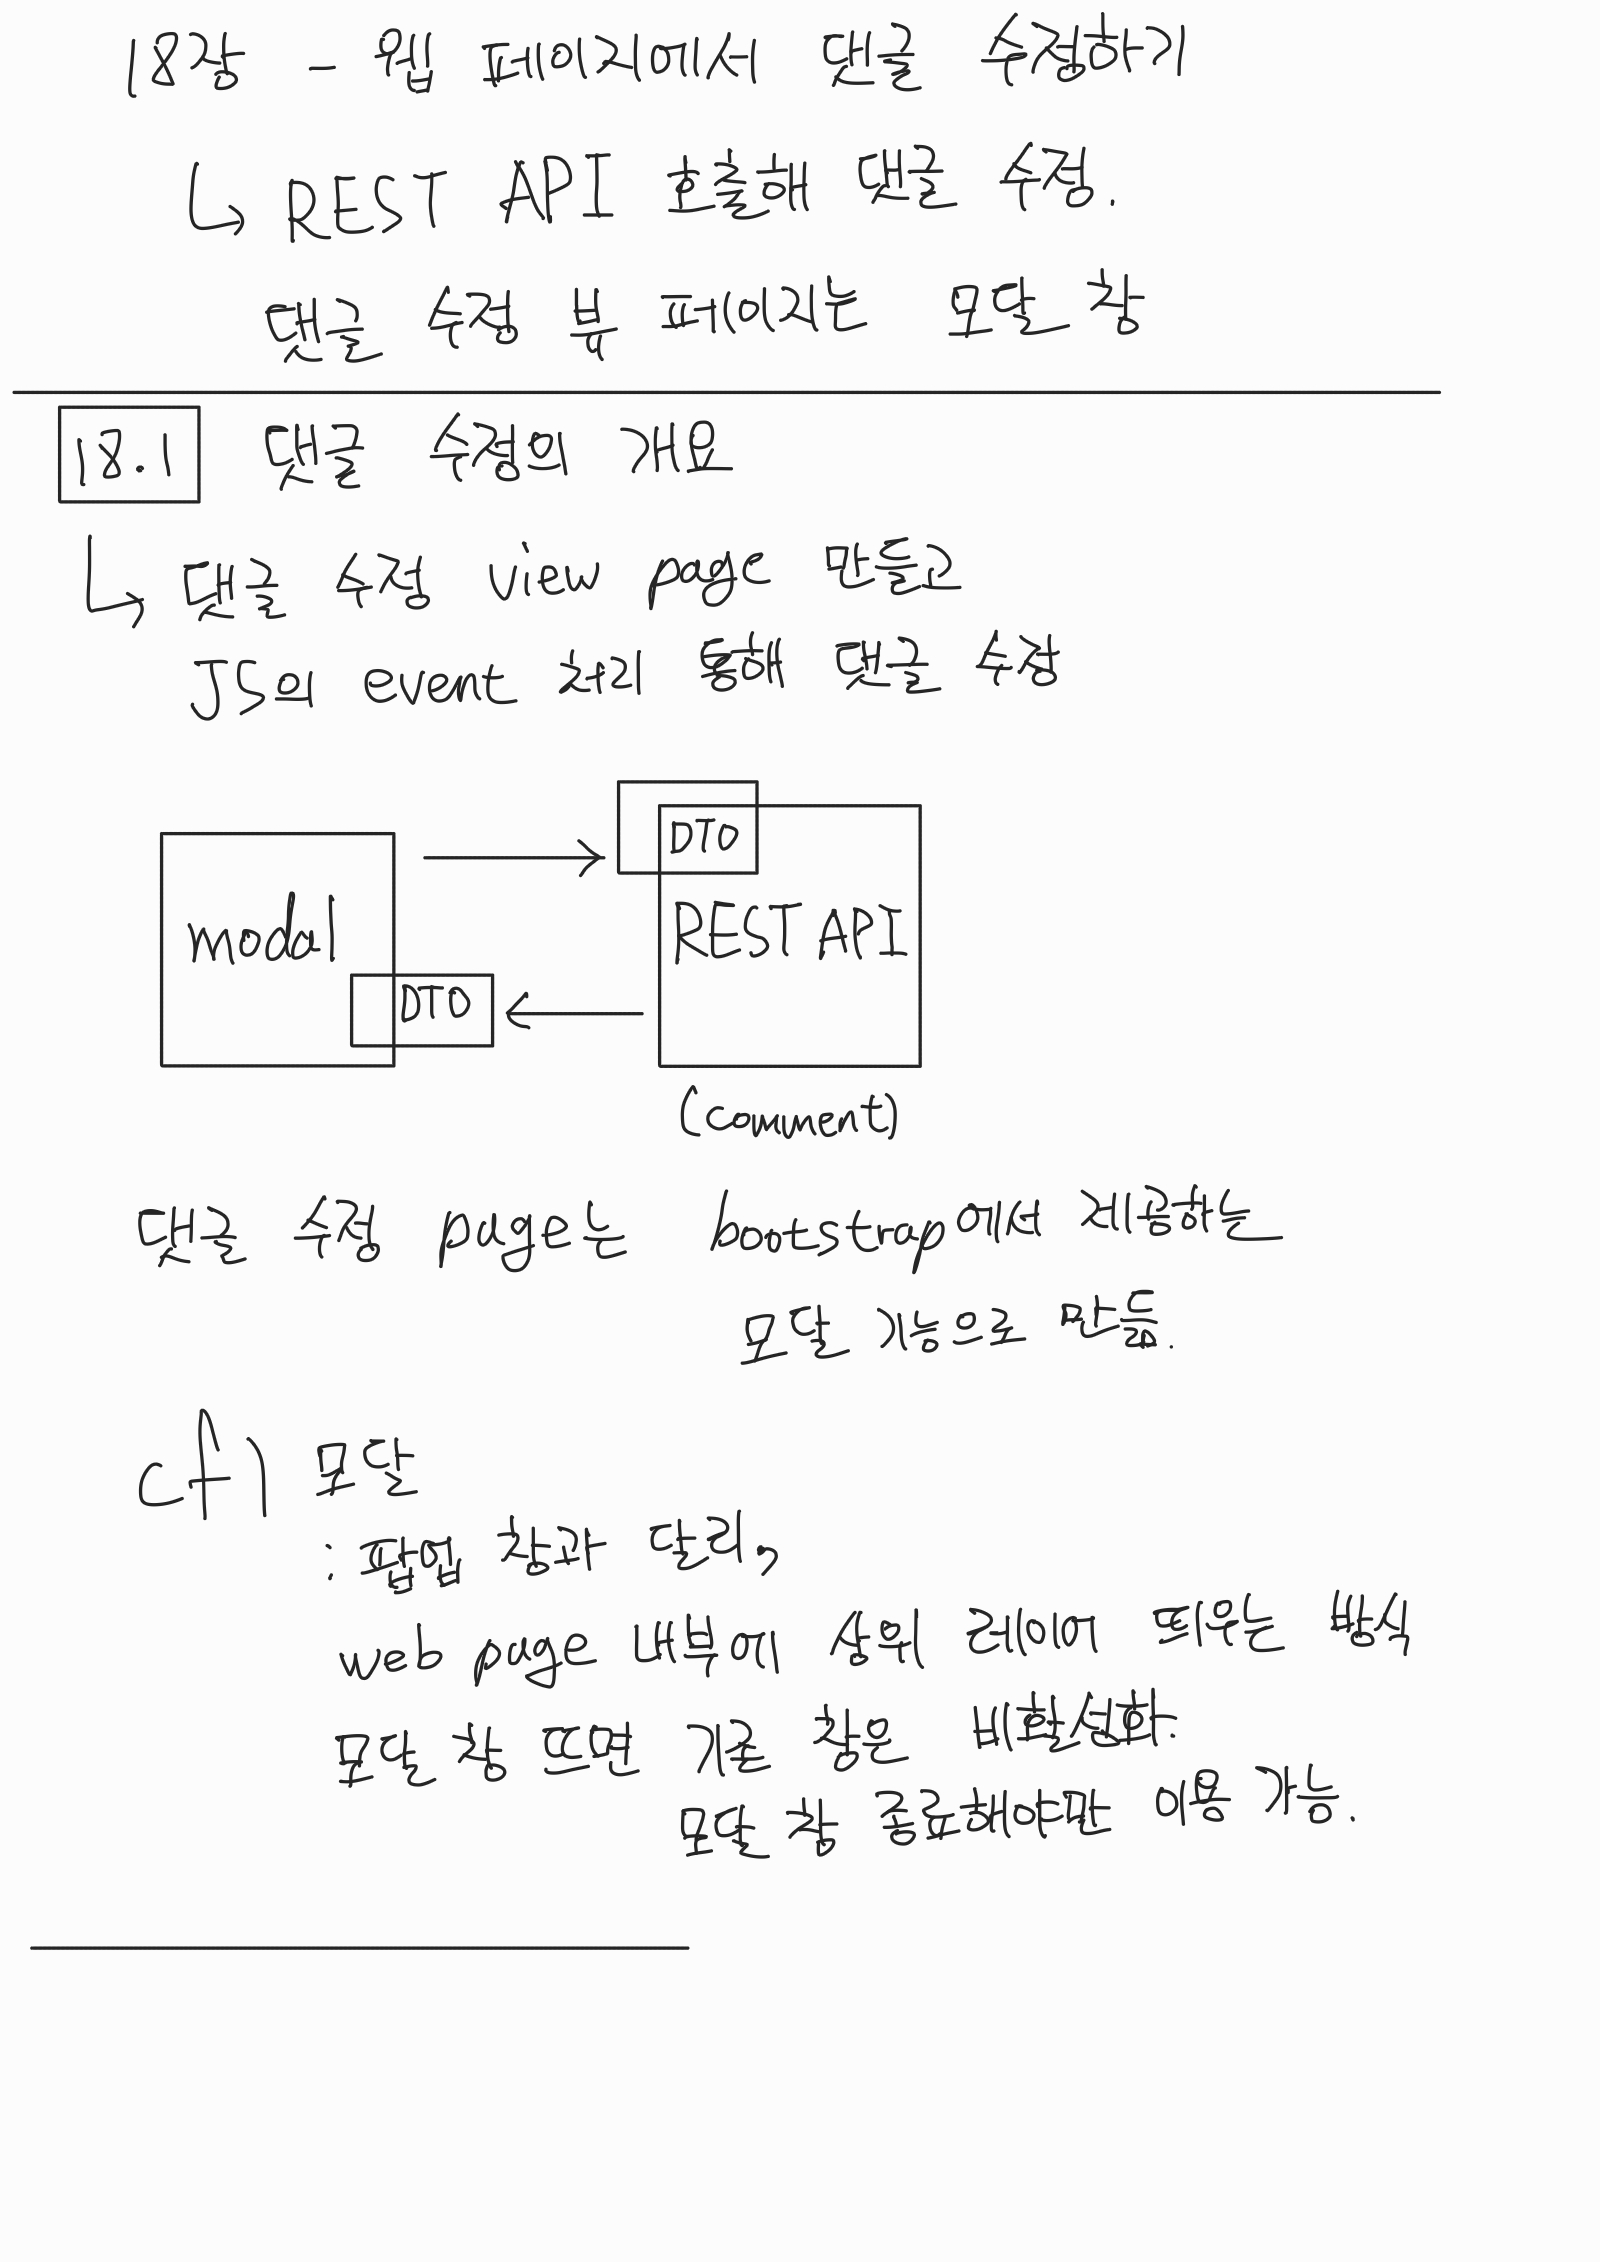 18장 - 웹 페이지에서 댓글 수정하기
REST API 호출해 댓글 수정.
댓글 수정 뷰 페이지는 모달 창
18.1 댓글 수정의 개요
댓글 수정 view page 만들고
JS의 event 처리 통해 댓글 수정
DTO
modal
REST API
DTO
(comment)
댓글 수정 page는 bootstrap에서 제공하는
모달 기능으로 만듦.
cf) 모달
: 팝업 창과 달리,
web page 내부에 상위 레이어 띄우는 방식
모달 창 뜨면 기존 창은 비활성화.
모달 창 종료해야만 이용 가능.